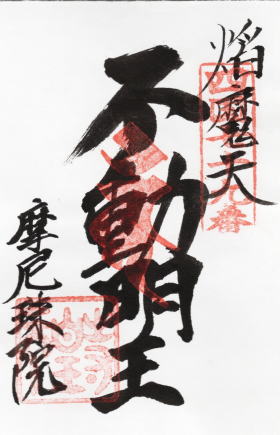 焔魔天
不動明王
摩尼珠院